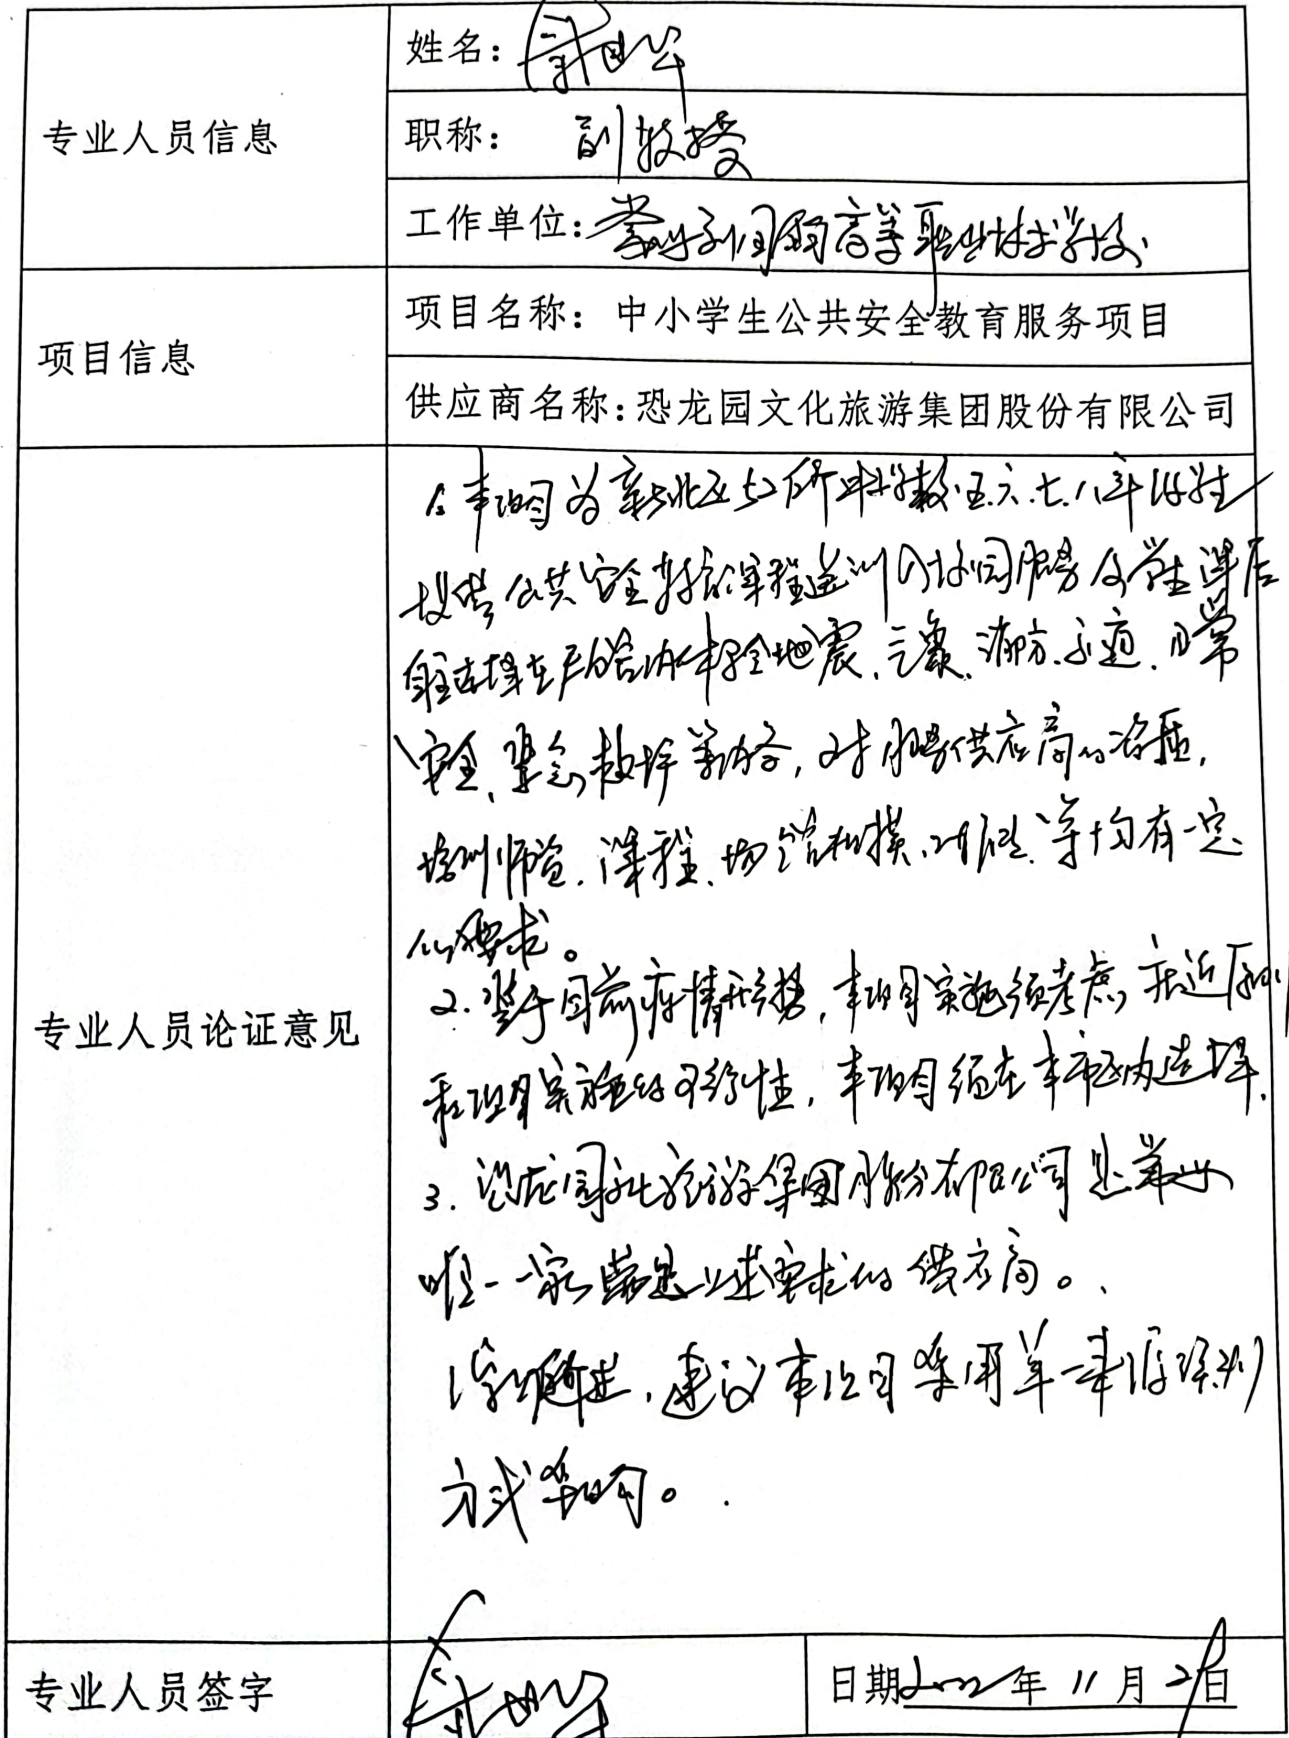 专业人员信息
姓名：
职称： 副教授
工作单位：常州刘国钧高等职业技术学校
项目信息
项目名称：中小学生公共安全教育服务项目
供应商名称：恐龙园文化旅游集团股份有限公司
专业人员论证意见
1. 本项目为新北区52所中小学校五.六.七.八年级学生
提供公共安全教育课程送训的协同服务及学生课后
自主选择在场馆内体验地震、消防、交通、日常
安全、紧急救护等内容，对服务供应商的资质，
培训师资、课程、场馆规模、等均有一定
的要求。
2. 鉴于目前疫情形势，本项目实施须考虑就近原则
和项目实施的可行性，本项目须在本市区内选择.
3. 恐龙园文化旅游集团股份有限公司是常州
唯一一家满足上述要求的供应商。
综上所述，建议本项目采用单一来源采购
方式采购。
专业人员签字
日期2022年11月29日